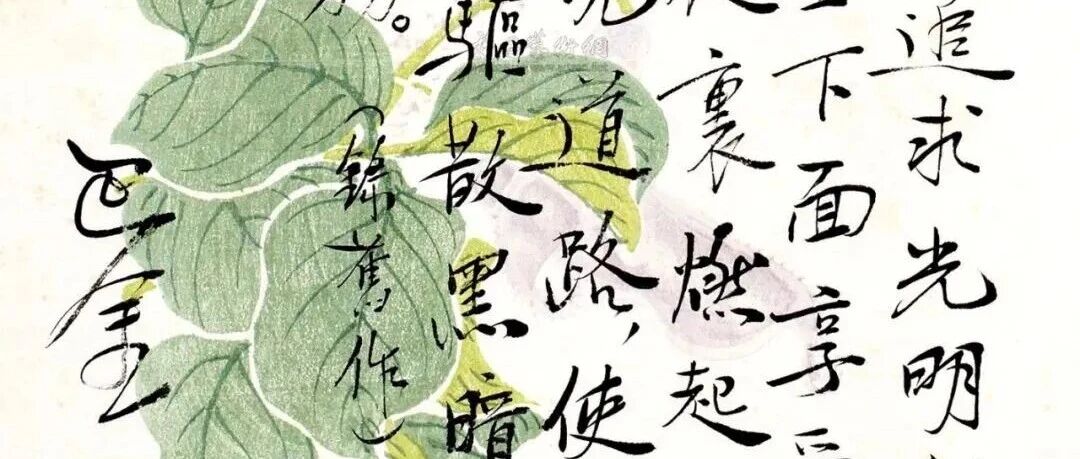 追求光明
下面享
裏燃起
道路，使
驅散黑暗
（錄舊作）
巴金